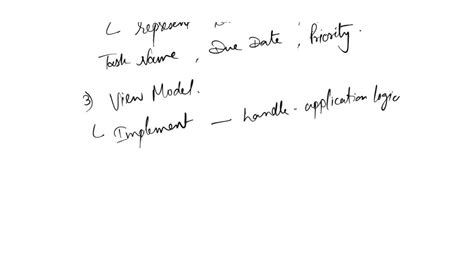 ↳ represent
Task Name, Due Date, Priority.
3) View Model.
↳ Implement — handle - application logic